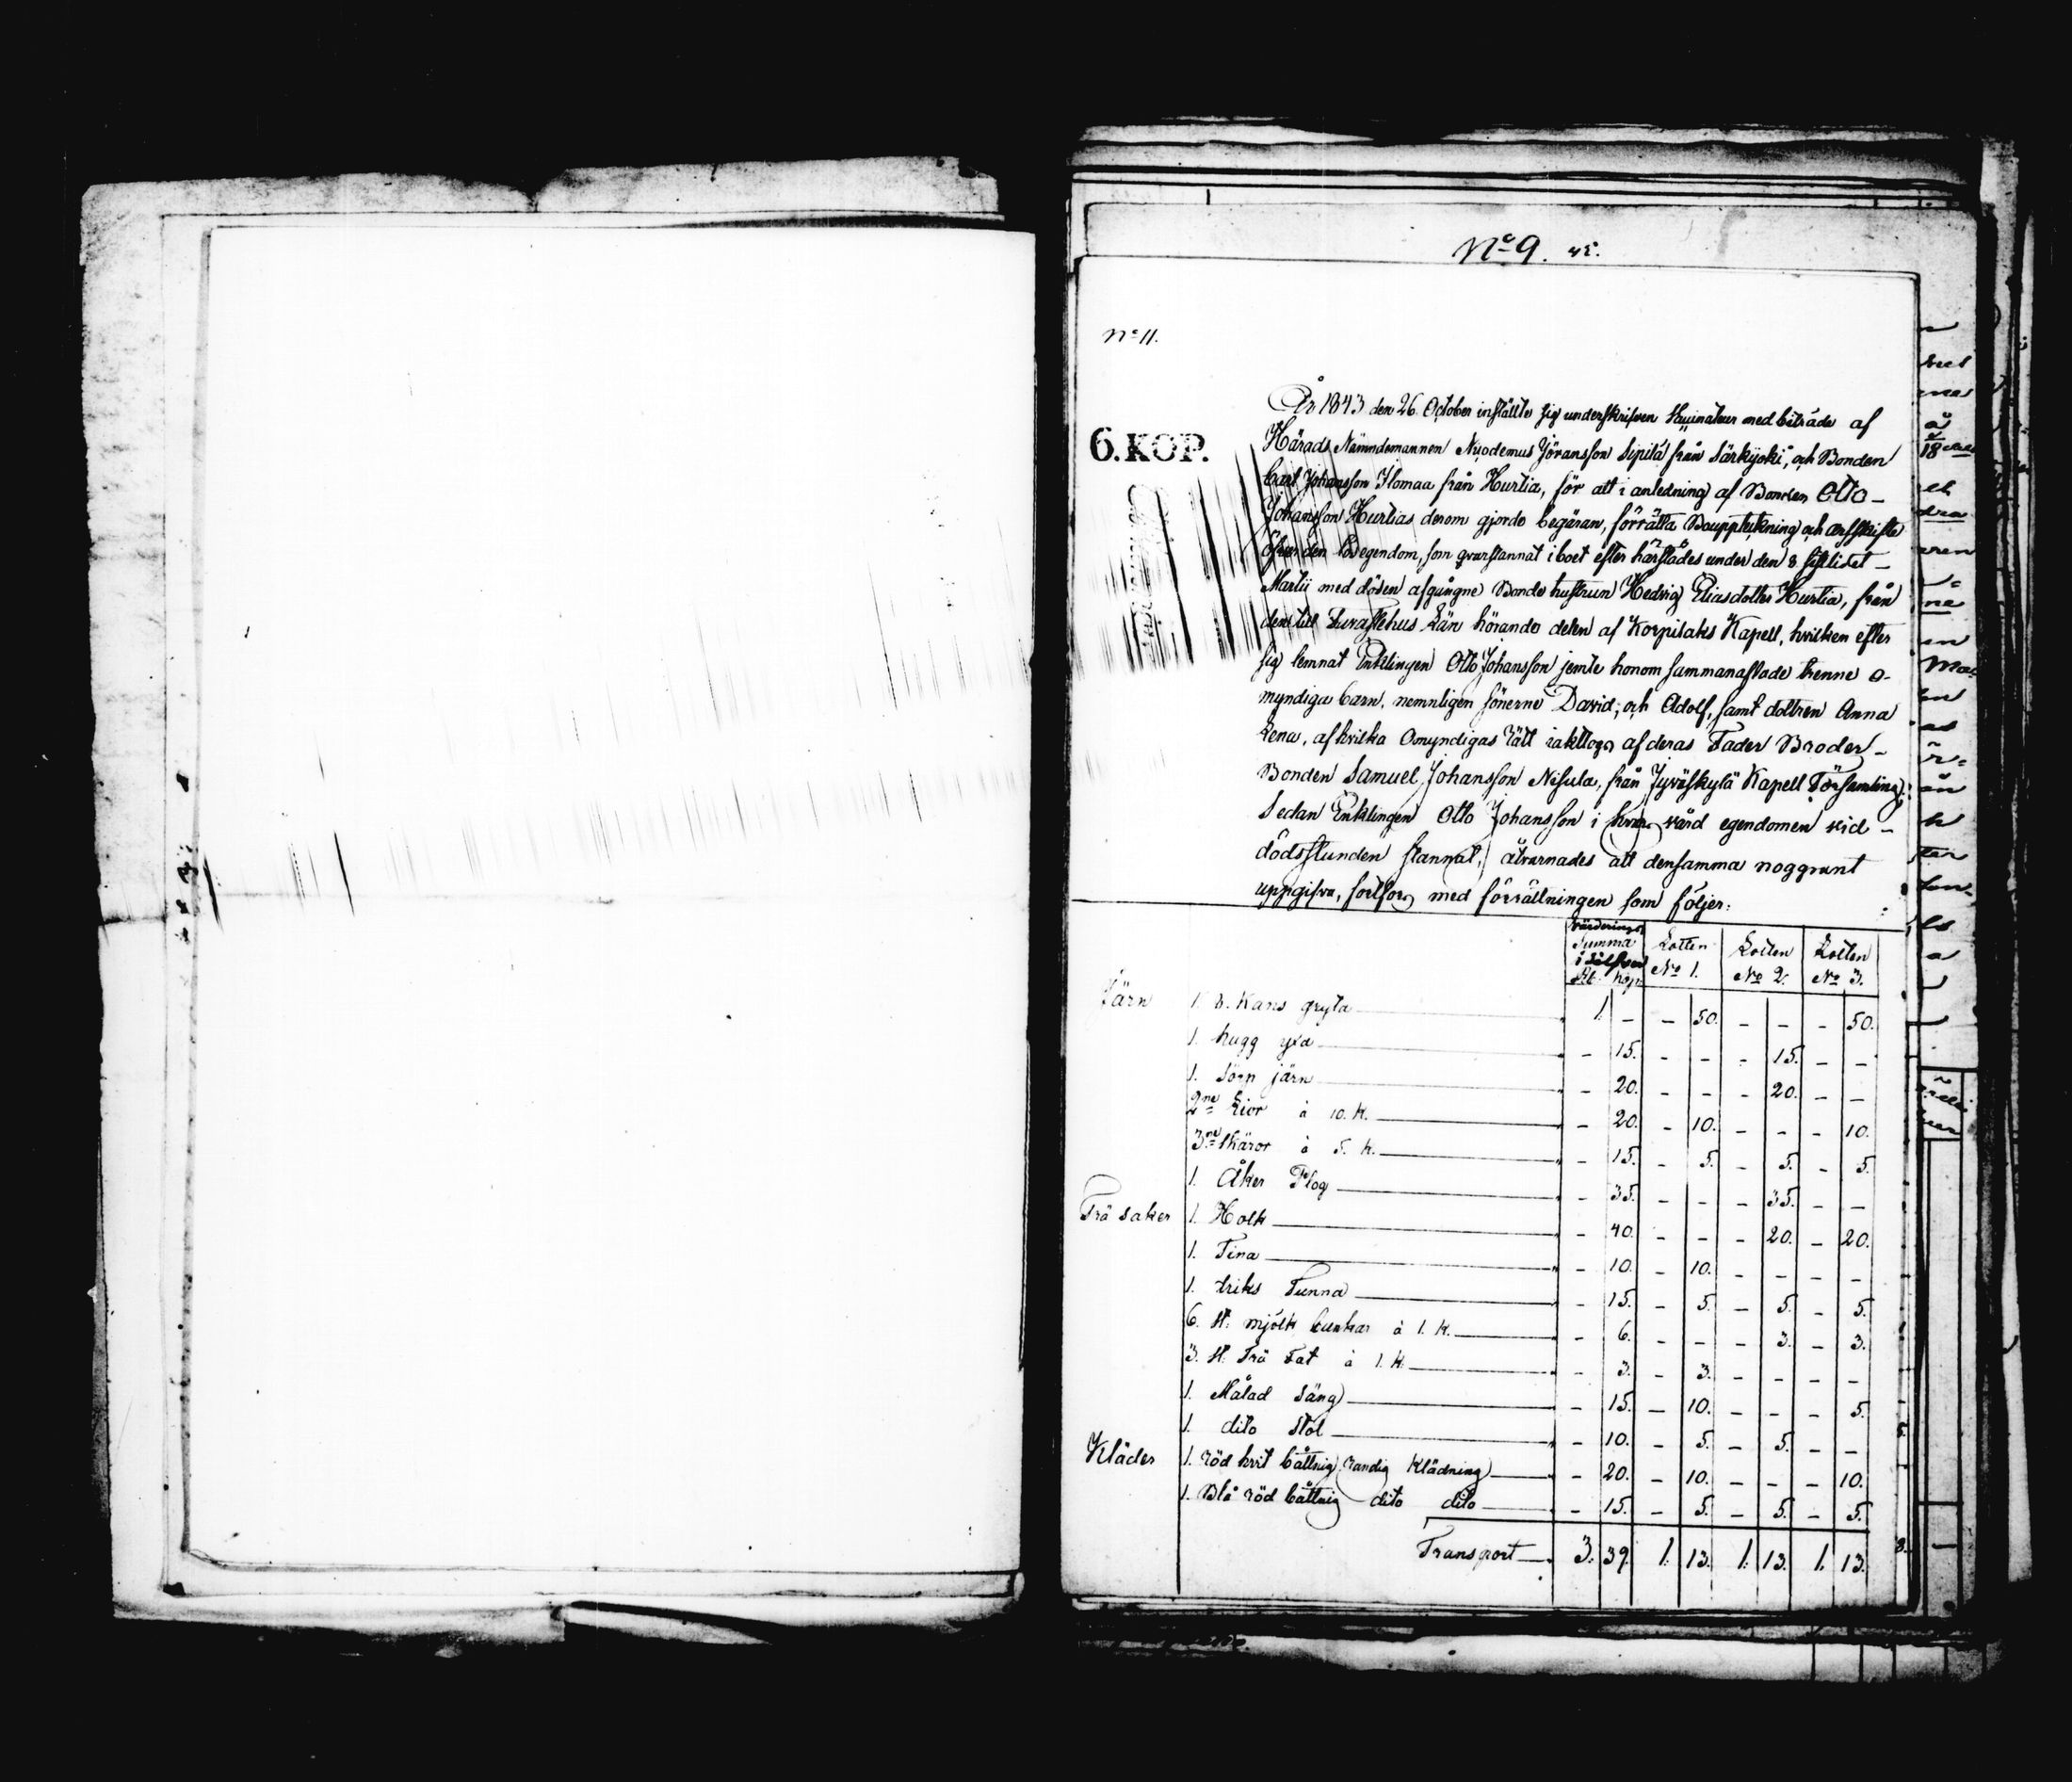 No 9. 45.
No 11.
6. KOP.
År 1843 den 26. October inställte sig underskrifven med biträde af
Härads Nämndemannen Nicodemus Jöransson Sipilä från Särkijoki, och Bonden
Carl Johansson Ilomaa från Hurtia, för att i anledning af Bonden Otto
Johansson Hurtias derom gjorde begäran, förrätta Bouppteckning och arfskifte
öfver den lösegendom, som qvarstannat i boet efter härstädes under den 8 sistlidet
Martii med döden afgångne Bonde hustrun Hedvig Eliasdotter Hurtia, från
den till Tavastehus Län hörande delen af Korpilaks Kapell, hvilken efter
sig lemnat Enklingen Otto Johansson jemte honom sammanaflade trenne o-
myndiga barn, nemnligen sönerne David, och Adolf, samt dottren Anna
Lena, af hvilka Omyndigas rätt iakttogs af deras Fader Broder
Bonden Samuel Johansson Nisula, från Jyväskylä Kapell Församling.
Sedan Enklingen Otto Johansson i hvars vård egendomen vid
dödsstunden stannat, åtvarnades att densamma noggrant
uppgifva, fortfors med förrättningen som följer:
Värderings Summa i Silfver Rb. Kop. Lotten No 1. Lotten No 2. Lotten No 3.
Järn 1. 8. Kans gryta 1. – – 50. – – – 50.
1. hugg yxa – 15. – – – 15. – –
1. Sörp järn – 20. – – – 20. – –
2ne Lior à 10. k. – 20. – 10. – – – 10.
3ne Skäror à 5. k. – 15. – 5. – 5. – 5.
1. Åker Plog – 35. – – – 35. – –
Trä saker 1. Holk – 40. – – – 20. – 20.
1. Tina – 10. – 10. – – – –
1. driks Tunna – 15. – 5. – 5. – 5.
6. st. mjölk bunkar à 1. k. – 6. – – – 3. – 3.
3. st. Trä Fat à 1. k. – 3. – 3. – – – –
1. Målad Säng – 15. – 10. – – – 5.
1. dito Stol – 10. – 5. – 5. – –
Kläder 1. röd hvit båttnig randig Klädning – 20. – 10. – – – 10.
1. Blå röd båttnig dito dito – 15. – 5. – 5. – 5.
Transport 3. 39. 1. 13. 1. 13. 1. 13.